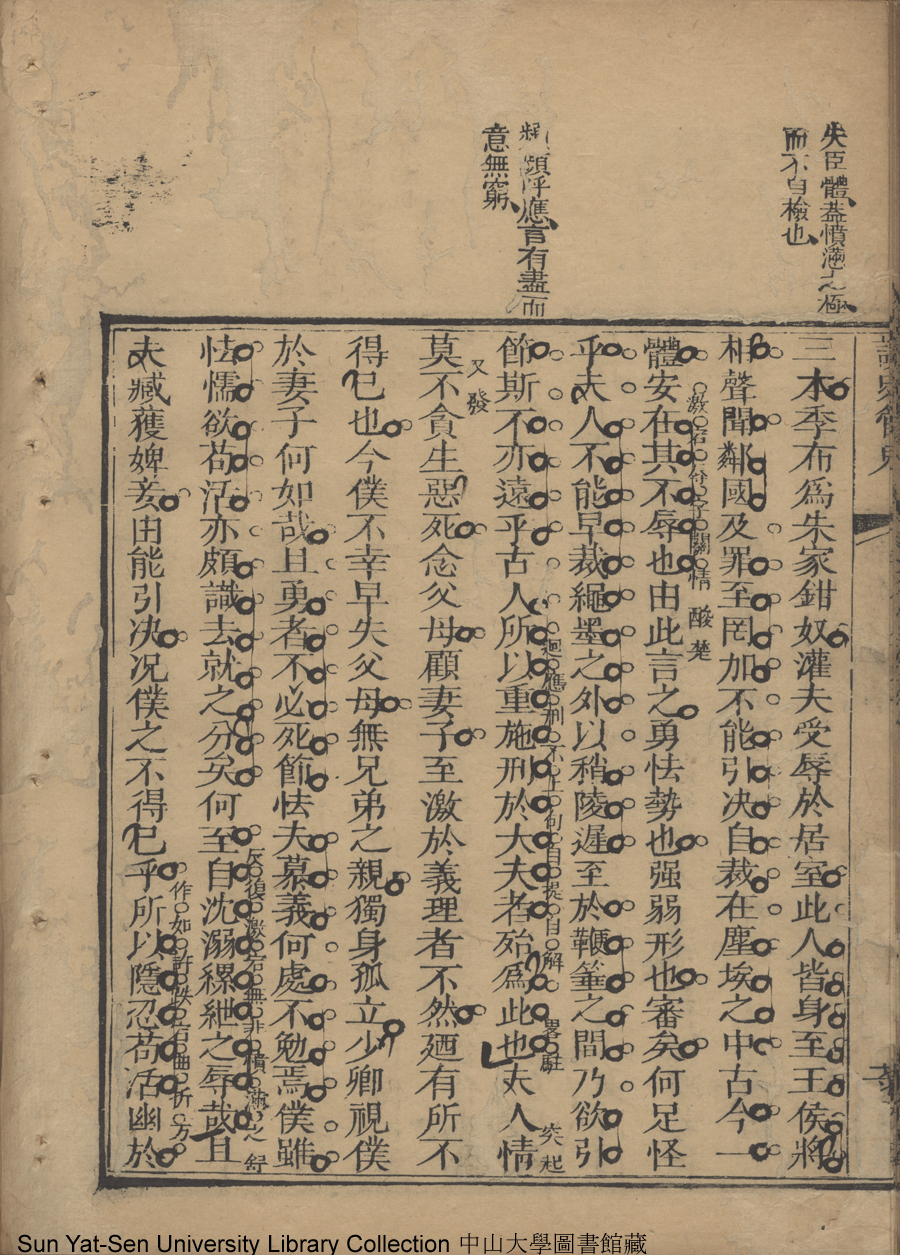 失臣體蓋憤懣之極
而不自檢也
頻呼應言有盡而
意無窮
三木季布爲朱家鉗奴灌夫受辱於居室此人皆身至王侯將
相聲聞鄰國及罪至罔加不能引决自裁在塵埃之中古今一
體安在其不辱也由此言之勇怯勢也强弱形也審矣何足怪
激宕有字關情 酸楚
乎夫人不能早裁繩墨之外以稍陵遲至於鞭箠之間乃欲引
節斯不亦遠乎古人所以重施刑於大夫者殆爲此也夫人情
迴應刑不上句自提自解 畧駐 突起
莫不貪生惡死念父母顧妻子至激於義理者不然廼有所不
又發
得已也今僕不幸早失父母無兄弟之親獨身孤立少卿視僕
於妻子何如哉且勇者不必死節怯夫慕義何處不勉焉僕雖
怯懦欲苟活亦頗識去就之分矣何至自沈溺縲紲之辱哉且
反復激宕無非憤懣之舒
夫臧獲婢妾由能引决况僕之不得已乎所以隱忍苟活幽於
作如許跌宕曲折方
Sun Yat-Sen University Library Collection 中山大學圖書館藏